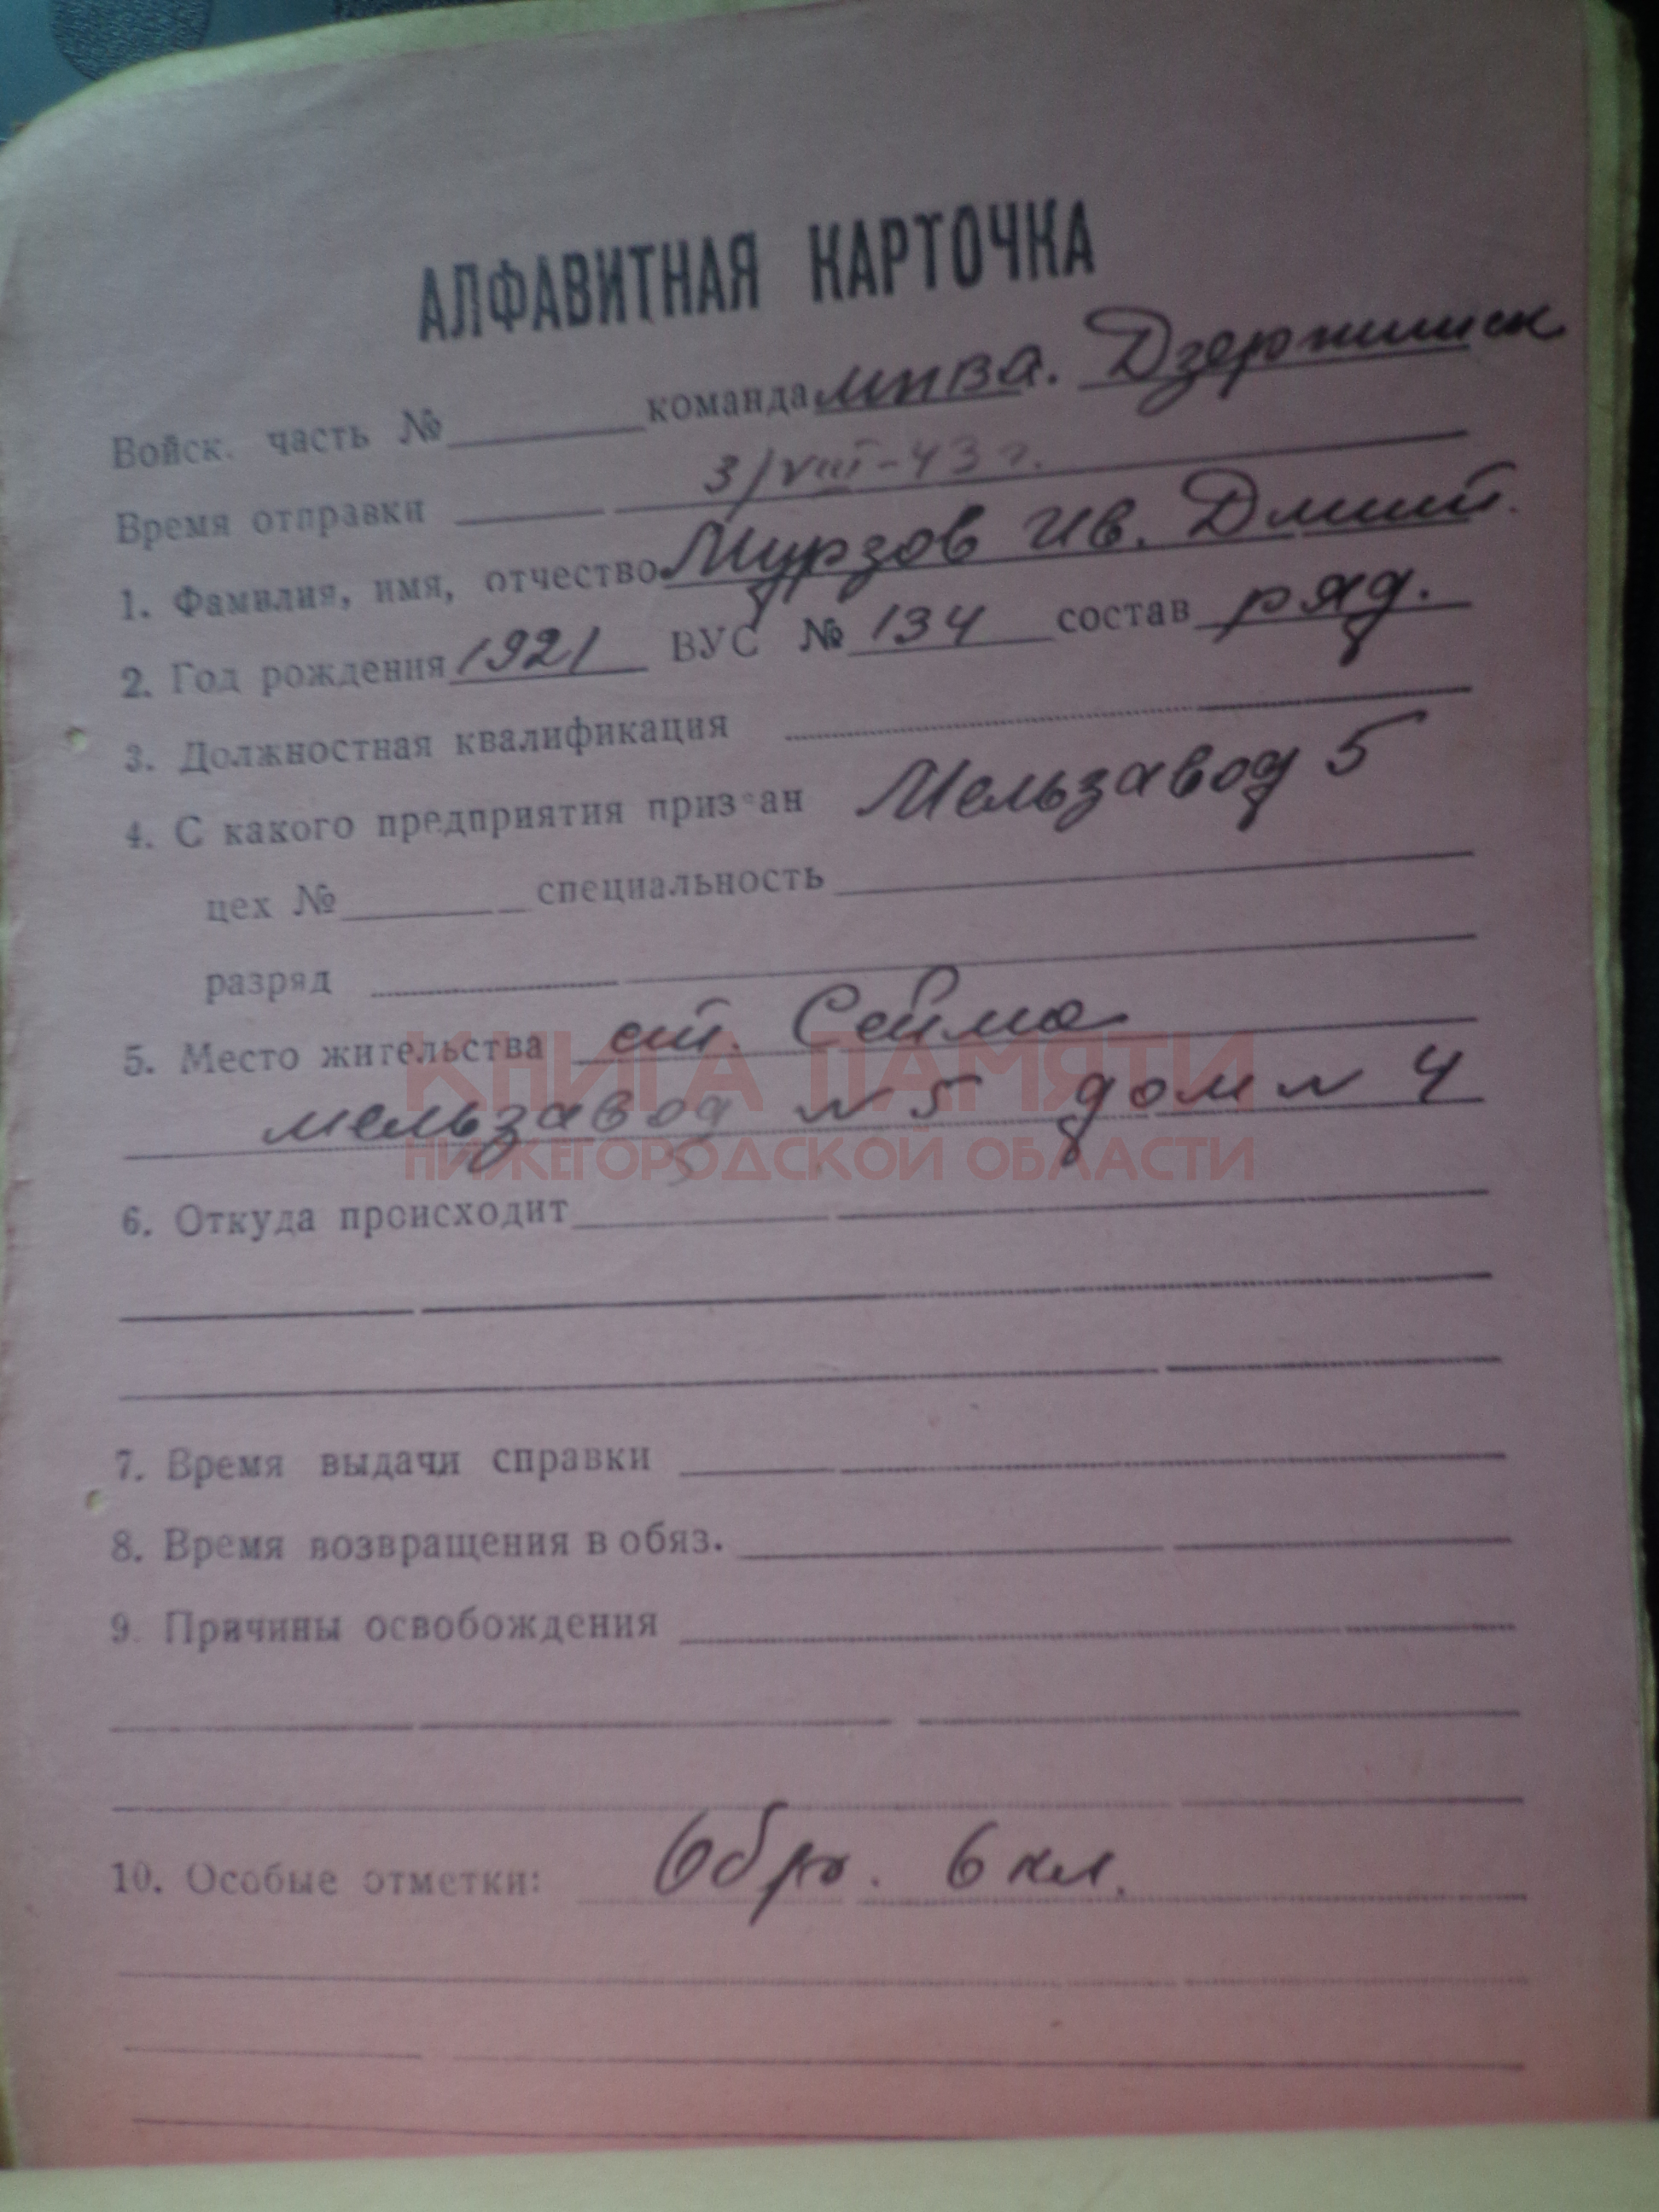 АЛФАВИТНАЯ КАРТОЧКА
Войск. часть № команда Дзержинск
Время отправки 3/VIII-43 г.
1. Фамилия, имя, отчество Мурзов Ив. Дмит.
2. Год рождения 1921 ВУС № 134 состав ряд.
3. Должностная квалификация
4. С какого предприятия призван Мельзавод 5
цех № специальность
разряд
5. Место жительства ст. Сейма
КНИГА ПАМЯТИ
мельзавод № 5 дом № 4
НИЖЕГОРОДСКОЙ ОБЛАСТИ
6. Откуда происходит
7. Время выдачи справки
8. Время возвращения в обяз.
9. Причины освобождения
10. Особые отметки: Обр. 6 кл.